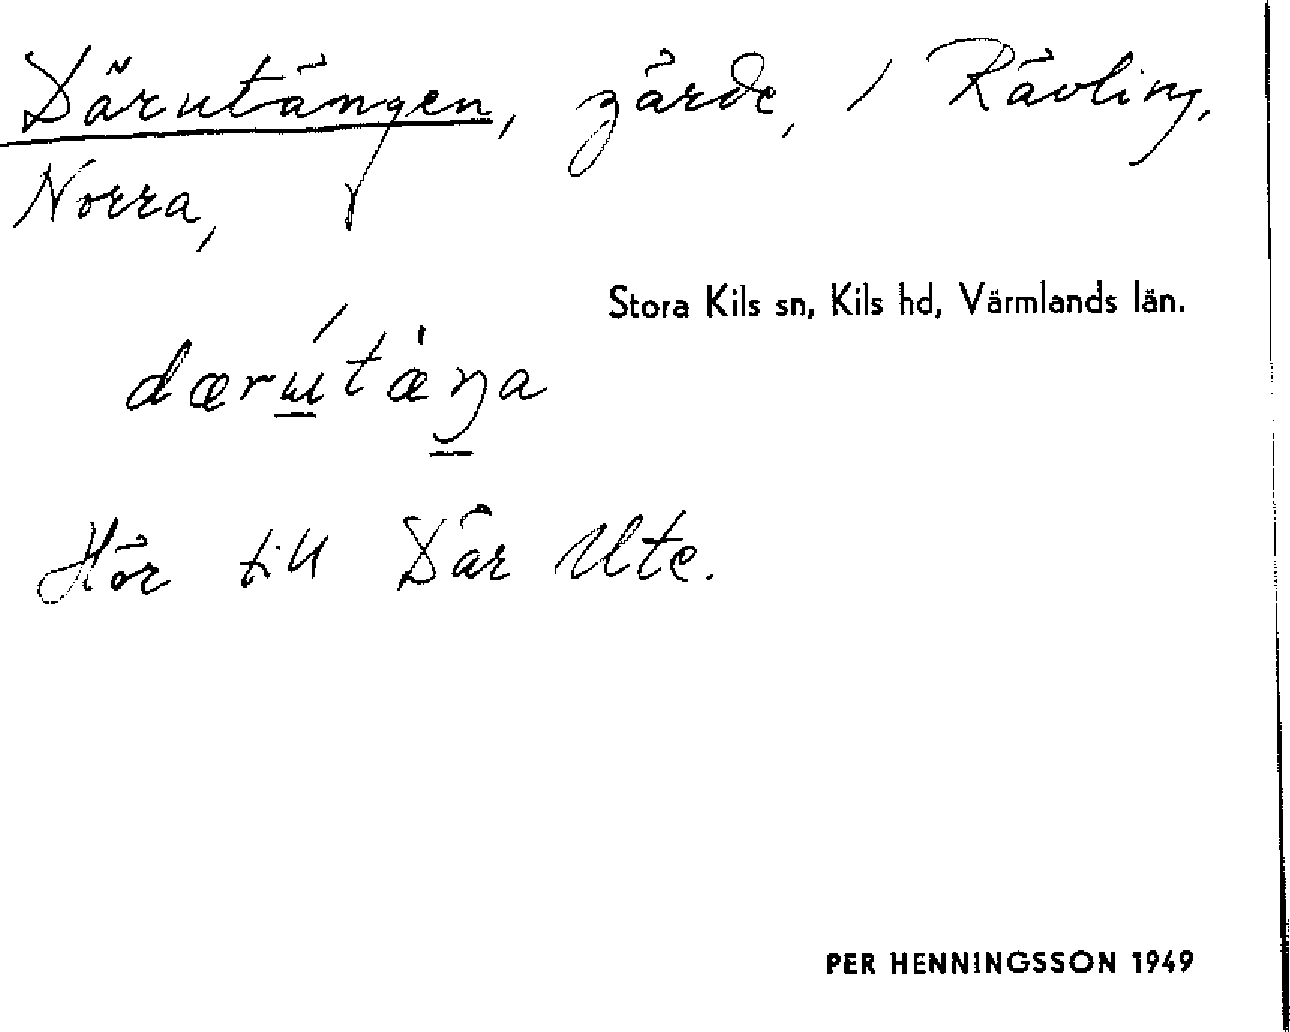 Därutängen, gärde, 1 Rävling,
Norra,
Stora Kils sn, Kils hd, Värmlands län.
dærútæ̀ŋa
Hör till Där Ute.
PER HENNINGSSON 1949